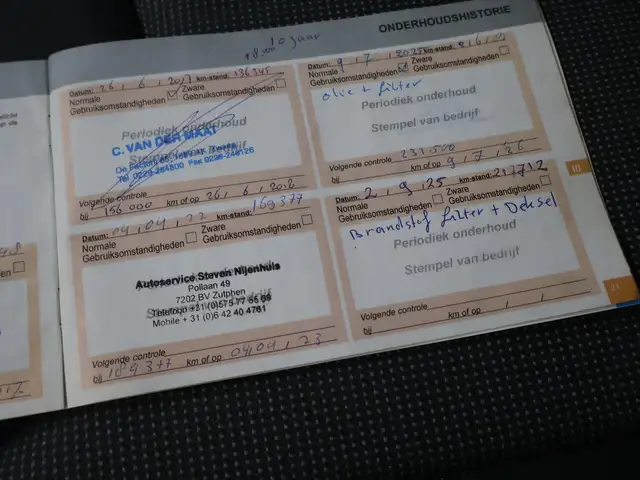 ONDERHOUDSHISTORIE
10 jaar
Datum: 26, 6, km-stand: 136345
Normale Gebruiksomstandigheden
Zware Gebruiksomstandigheden
Periodiek onderhoud
C. VAN DER MAAT
Tel. 0229-284800 Fax 0229-248126
Volgende controle
bij 156.000 km of op 26, 6,
Datum: 9, 7, 2025 km-stand:
Normale Gebruiksomstandigheden
Zware Gebruiksomstandigheden
olie + filter
Periodiek onderhoud
Stempel van bedrijf
Volgende controle
bij 233.500 km of op 9, 7, 26
Datum: 04, 04, 22 km-stand: 169377
Normale Gebruiksomstandigheden
Zware Gebruiksomstandigheden
Autoservice Steven Nijenhuis
Pollaan 49
7202 BV Zutphen
Telefoon +31 (0)575 77 65 69
Mobile + 31 (0)6 42 40 4761
Volgende controle
bij 189377 km of op 04, 04, 23
Datum: 2, 9, 25 km-stand: 217712
Normale Gebruiksomstandigheden
Zware Gebruiksomstandigheden
Brandstof filter + Deksel
Periodiek onderhoud
Stempel van bedrijf
Volgende controle
bij km of op , ,
21